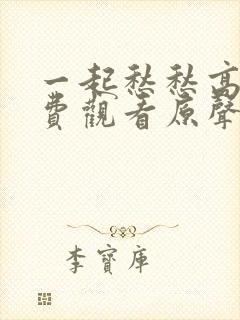 一起愁愁高
费觀看原聲
李寶庫